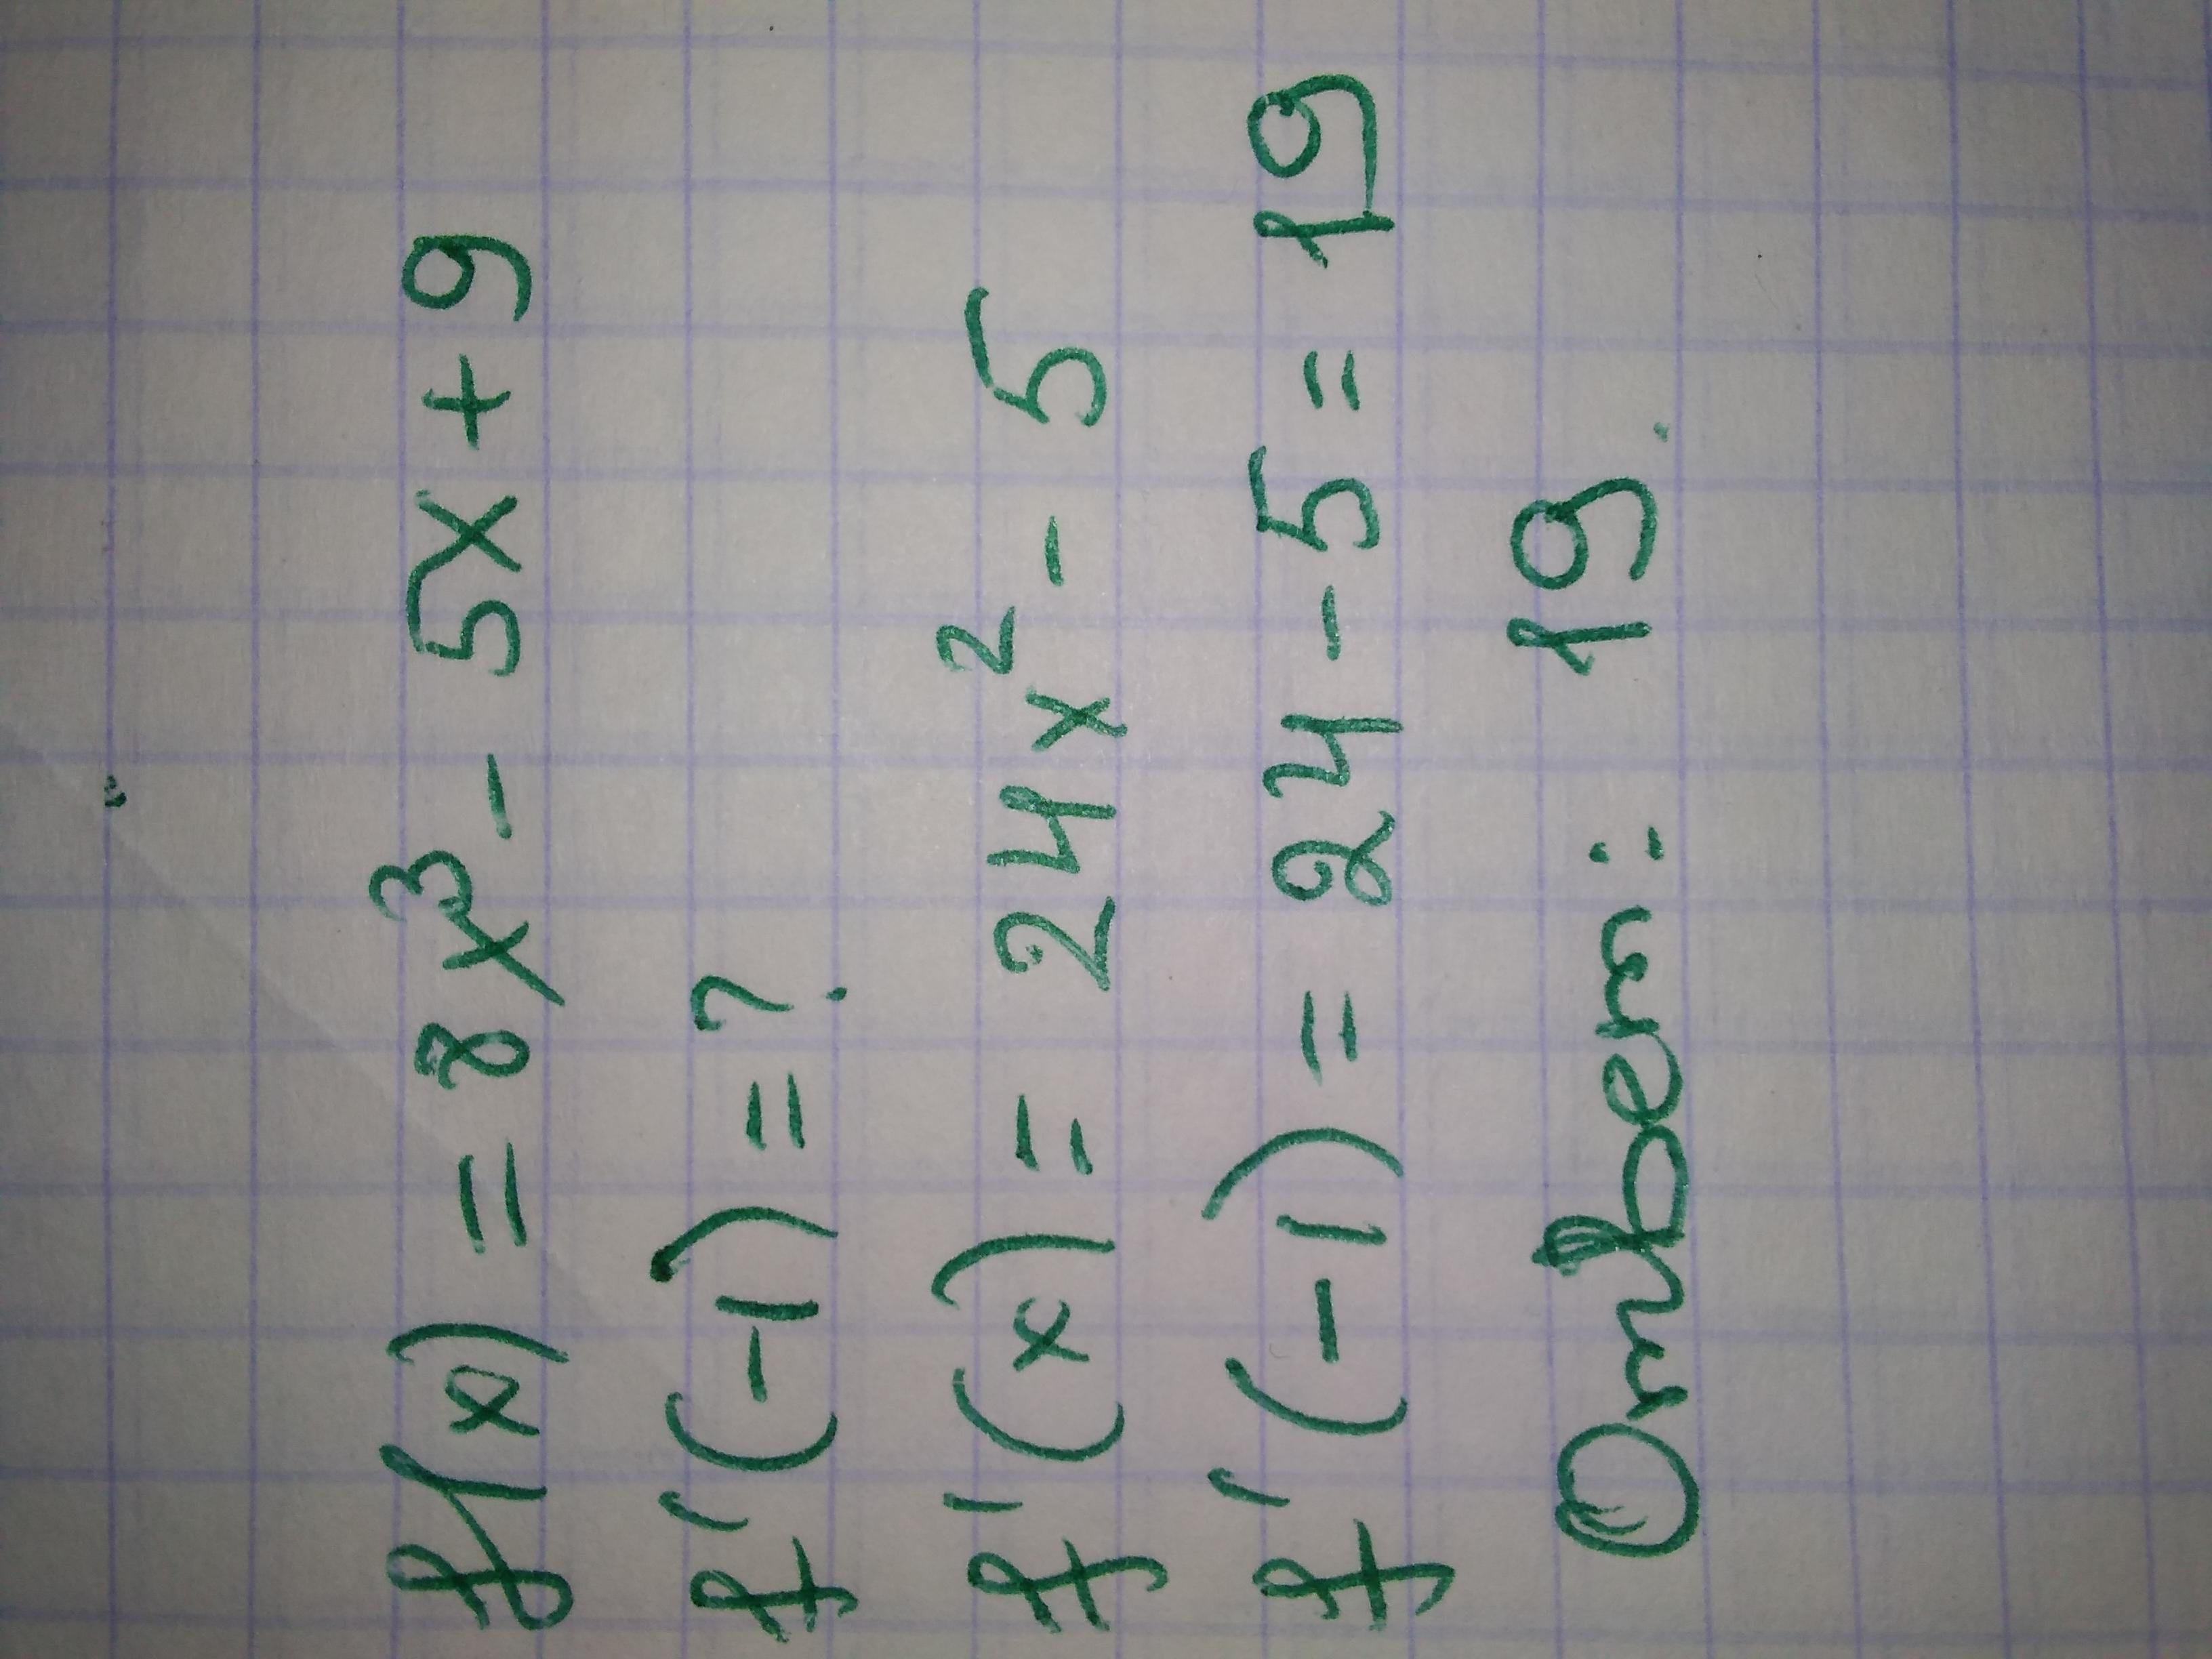 f(x) = 8x³ - 5x + 9
f'(-1) = ?
f'(x) = 24x² - 5
f'(-1) = 24 - 5 = 19
Ответ: 19.